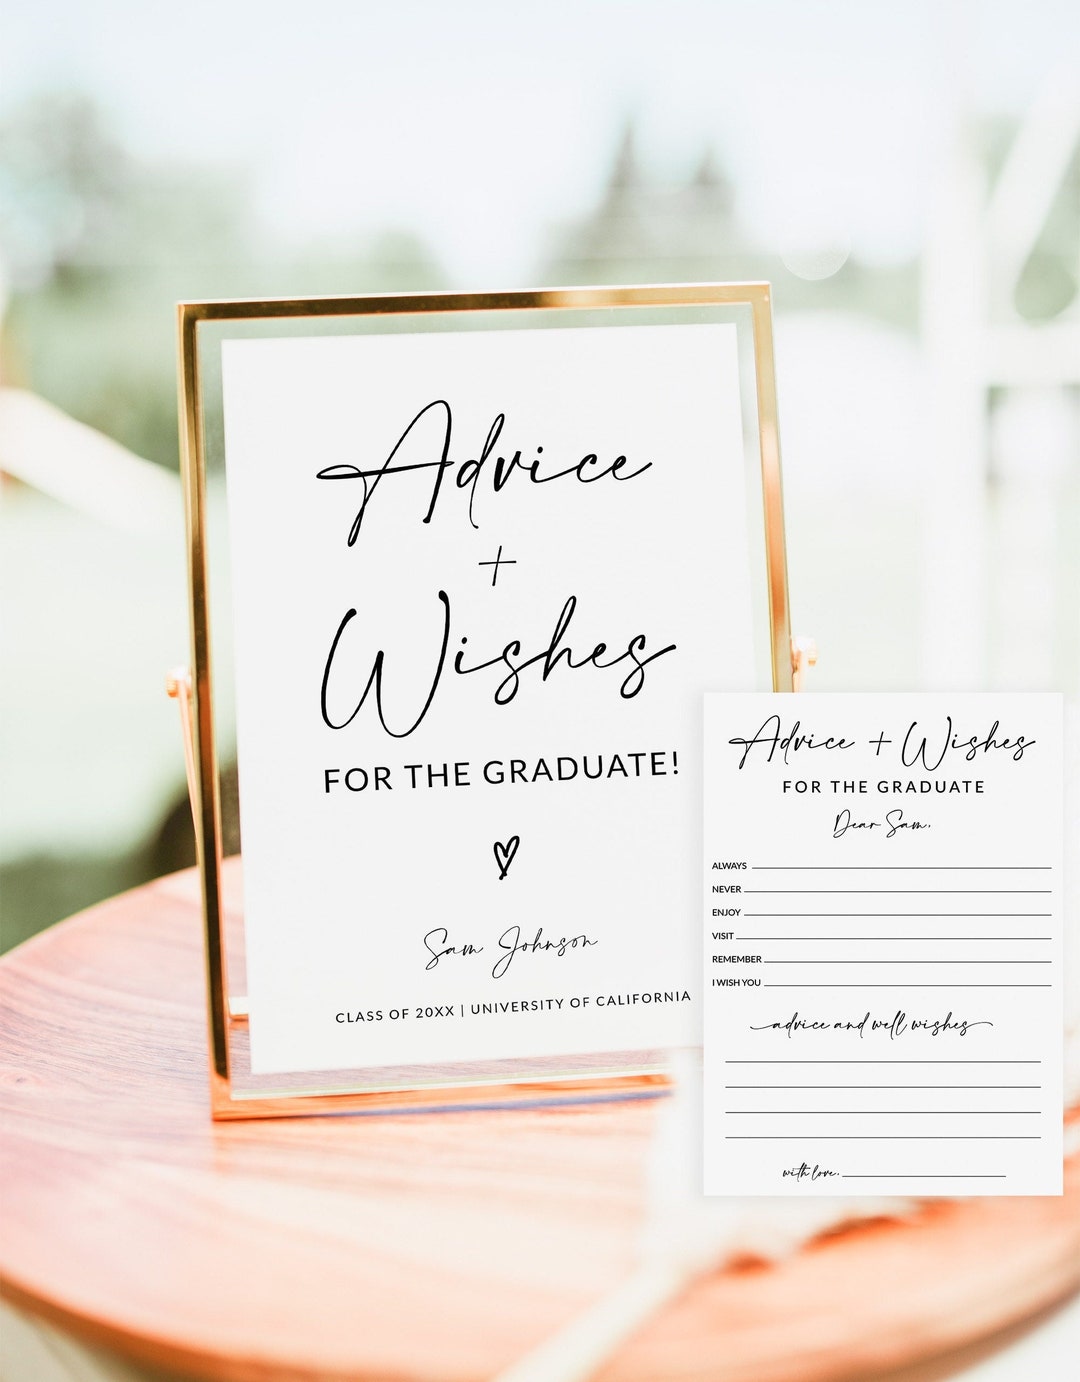 Advice
+
Wishes
FOR THE GRADUATE!
Sam Johnson
CLASS OF 20XX | UNIVERSITY OF CALIFORNIA
Advice + Wishes
FOR THE GRADUATE
Dear Sam,
ALWAYS
NEVER
ENJOY
VISIT
REMEMBER
I WISH YOU
advice and well wishes
with love,